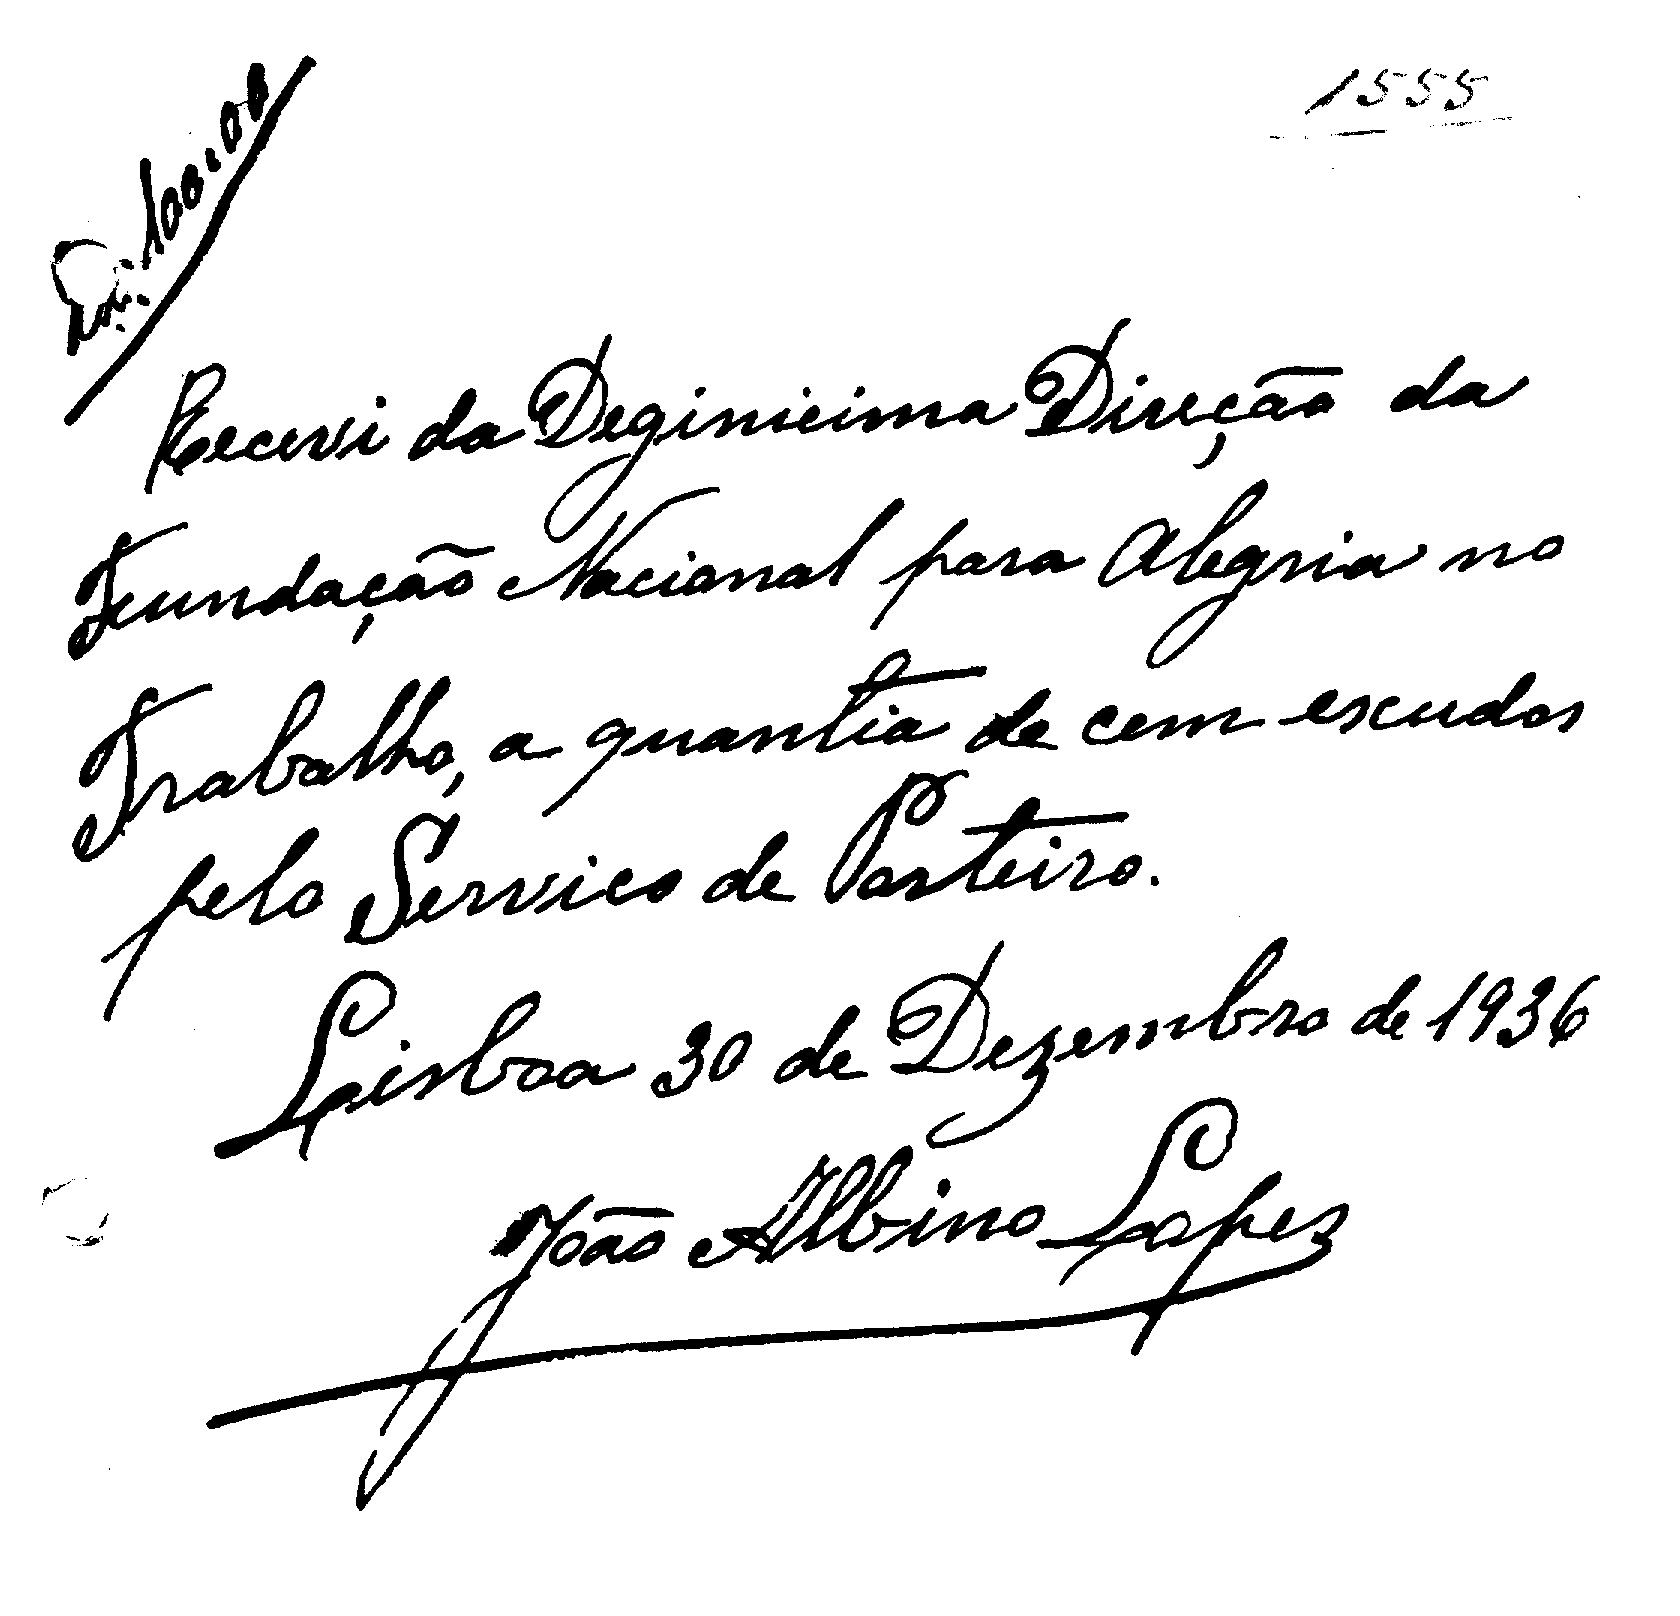 1555
Es. 100.00
Recevi da Deginieima Direção da
Fundação Nacional para Alegria no
Trabalho, a quantia de cem escudos
pelo Servico de Porteiro.
Lisboa 30 de Dezembro de 1936
João Albino Lopes